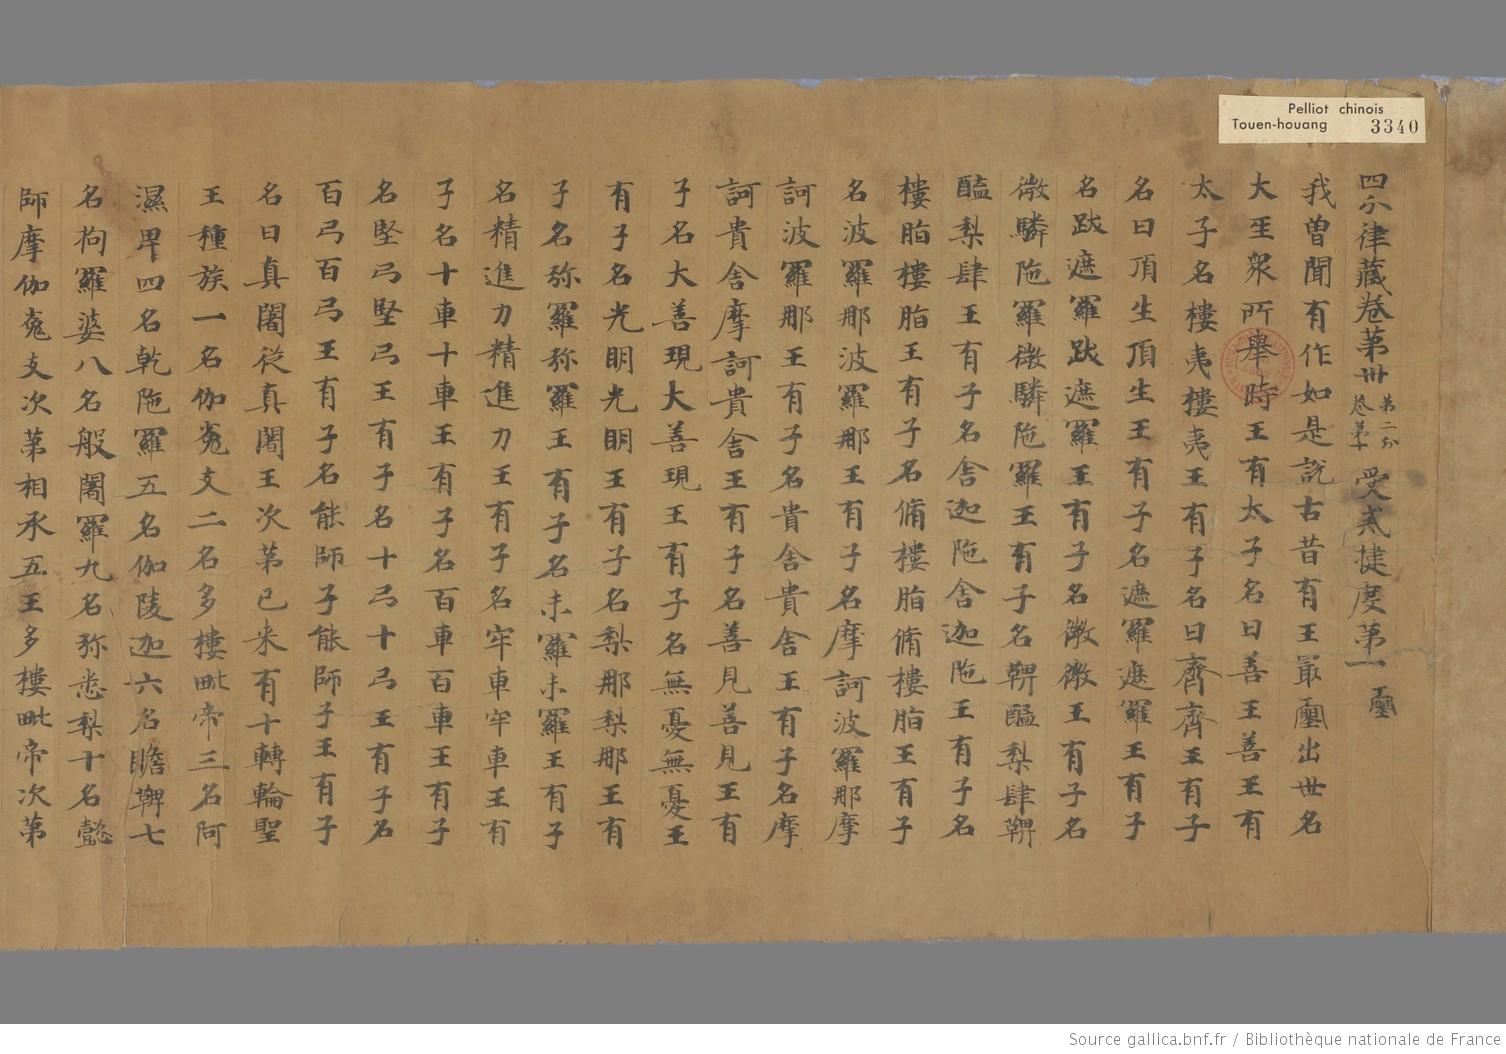 Pelliot chinois
Touen-houang 3340
四分律藏卷第卅 第二分卷第十 受戒揵度第一
我曾聞有作如是說古昔有王最初出世名
大王眾所舉時王有太子名曰善王善王有
太子名樓夷樓夷王有子名曰齊齊王有子
名曰頂生頂生王有子名遮羅遮羅王有子
名跋遮羅跋遮羅王有子名微微王有子名
微驎陁羅微驎陁羅王有子名鞞醯梨肆鞞
醯梨肆王有子名舍迦陁舍迦陁王有子名
樓脂樓脂王有子名脩樓脂脩樓脂王有子
名波羅那波羅那王有子名摩訶波羅那摩
訶波羅那王有子名貴舍貴舍王有子名摩
訶貴舍摩訶貴舍王有子名善見善見王有
子名大善現大善現王有子名無憂無憂王
有子名光明光明王有子名梨那梨那王有
子名弥羅弥羅王有子名末羅末羅王有子
名精進力精進力王有子名牢車牢車王有
子名十車十車王有子名百車百車王有子
名堅弓堅弓王有子名十弓十弓王有子名
百弓百弓王有子名能師子能師子王有子
名曰真闍從真闍王次第已来有十轉輪聖
王種族一名伽㝹支二名多樓毗帝三名阿
濕卑四名乾陁羅五名伽陵迦六名瞻鞞七
名拘羅婆八名般闍羅九名弥悉梨十名懿
師摩伽㝹支次第相承五王多樓毗帝次第
Source gallica.bnf.fr / Bibliothèque nationale de France